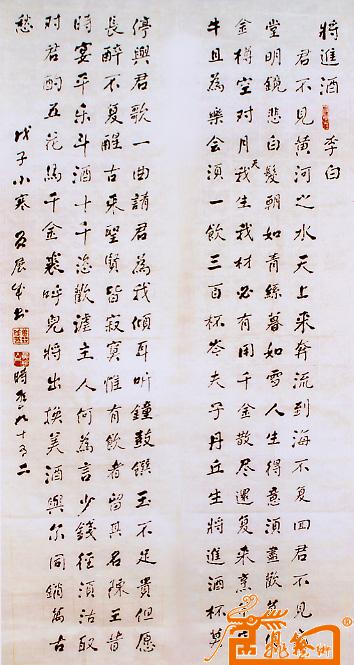 將進酒 李白
君不見黃河之水天上來奔流到海不复回君不見
堂明鏡悲白髮朝如青絲暮如雪人生得意須盡歡莫
金樽空對月天我生我材必有用千金散盡還复來烹
牛且為樂会須一飲三百杯岑夫子丹丘生將進酒杯莫
停與君歌一曲請君為我傾耳听鐘鼓饌玉不足貴但愿
長醉不复醒古來聖賢皆寂寞惟有飲者留其名陳王昔
時宴平乐斗酒十千恣歡謔主人何為言少錢徑須沽取
對君酌五花馬千金裘呼兒將出換美酒與尔同銷萬古
愁
戊子小寒
時年九十有二